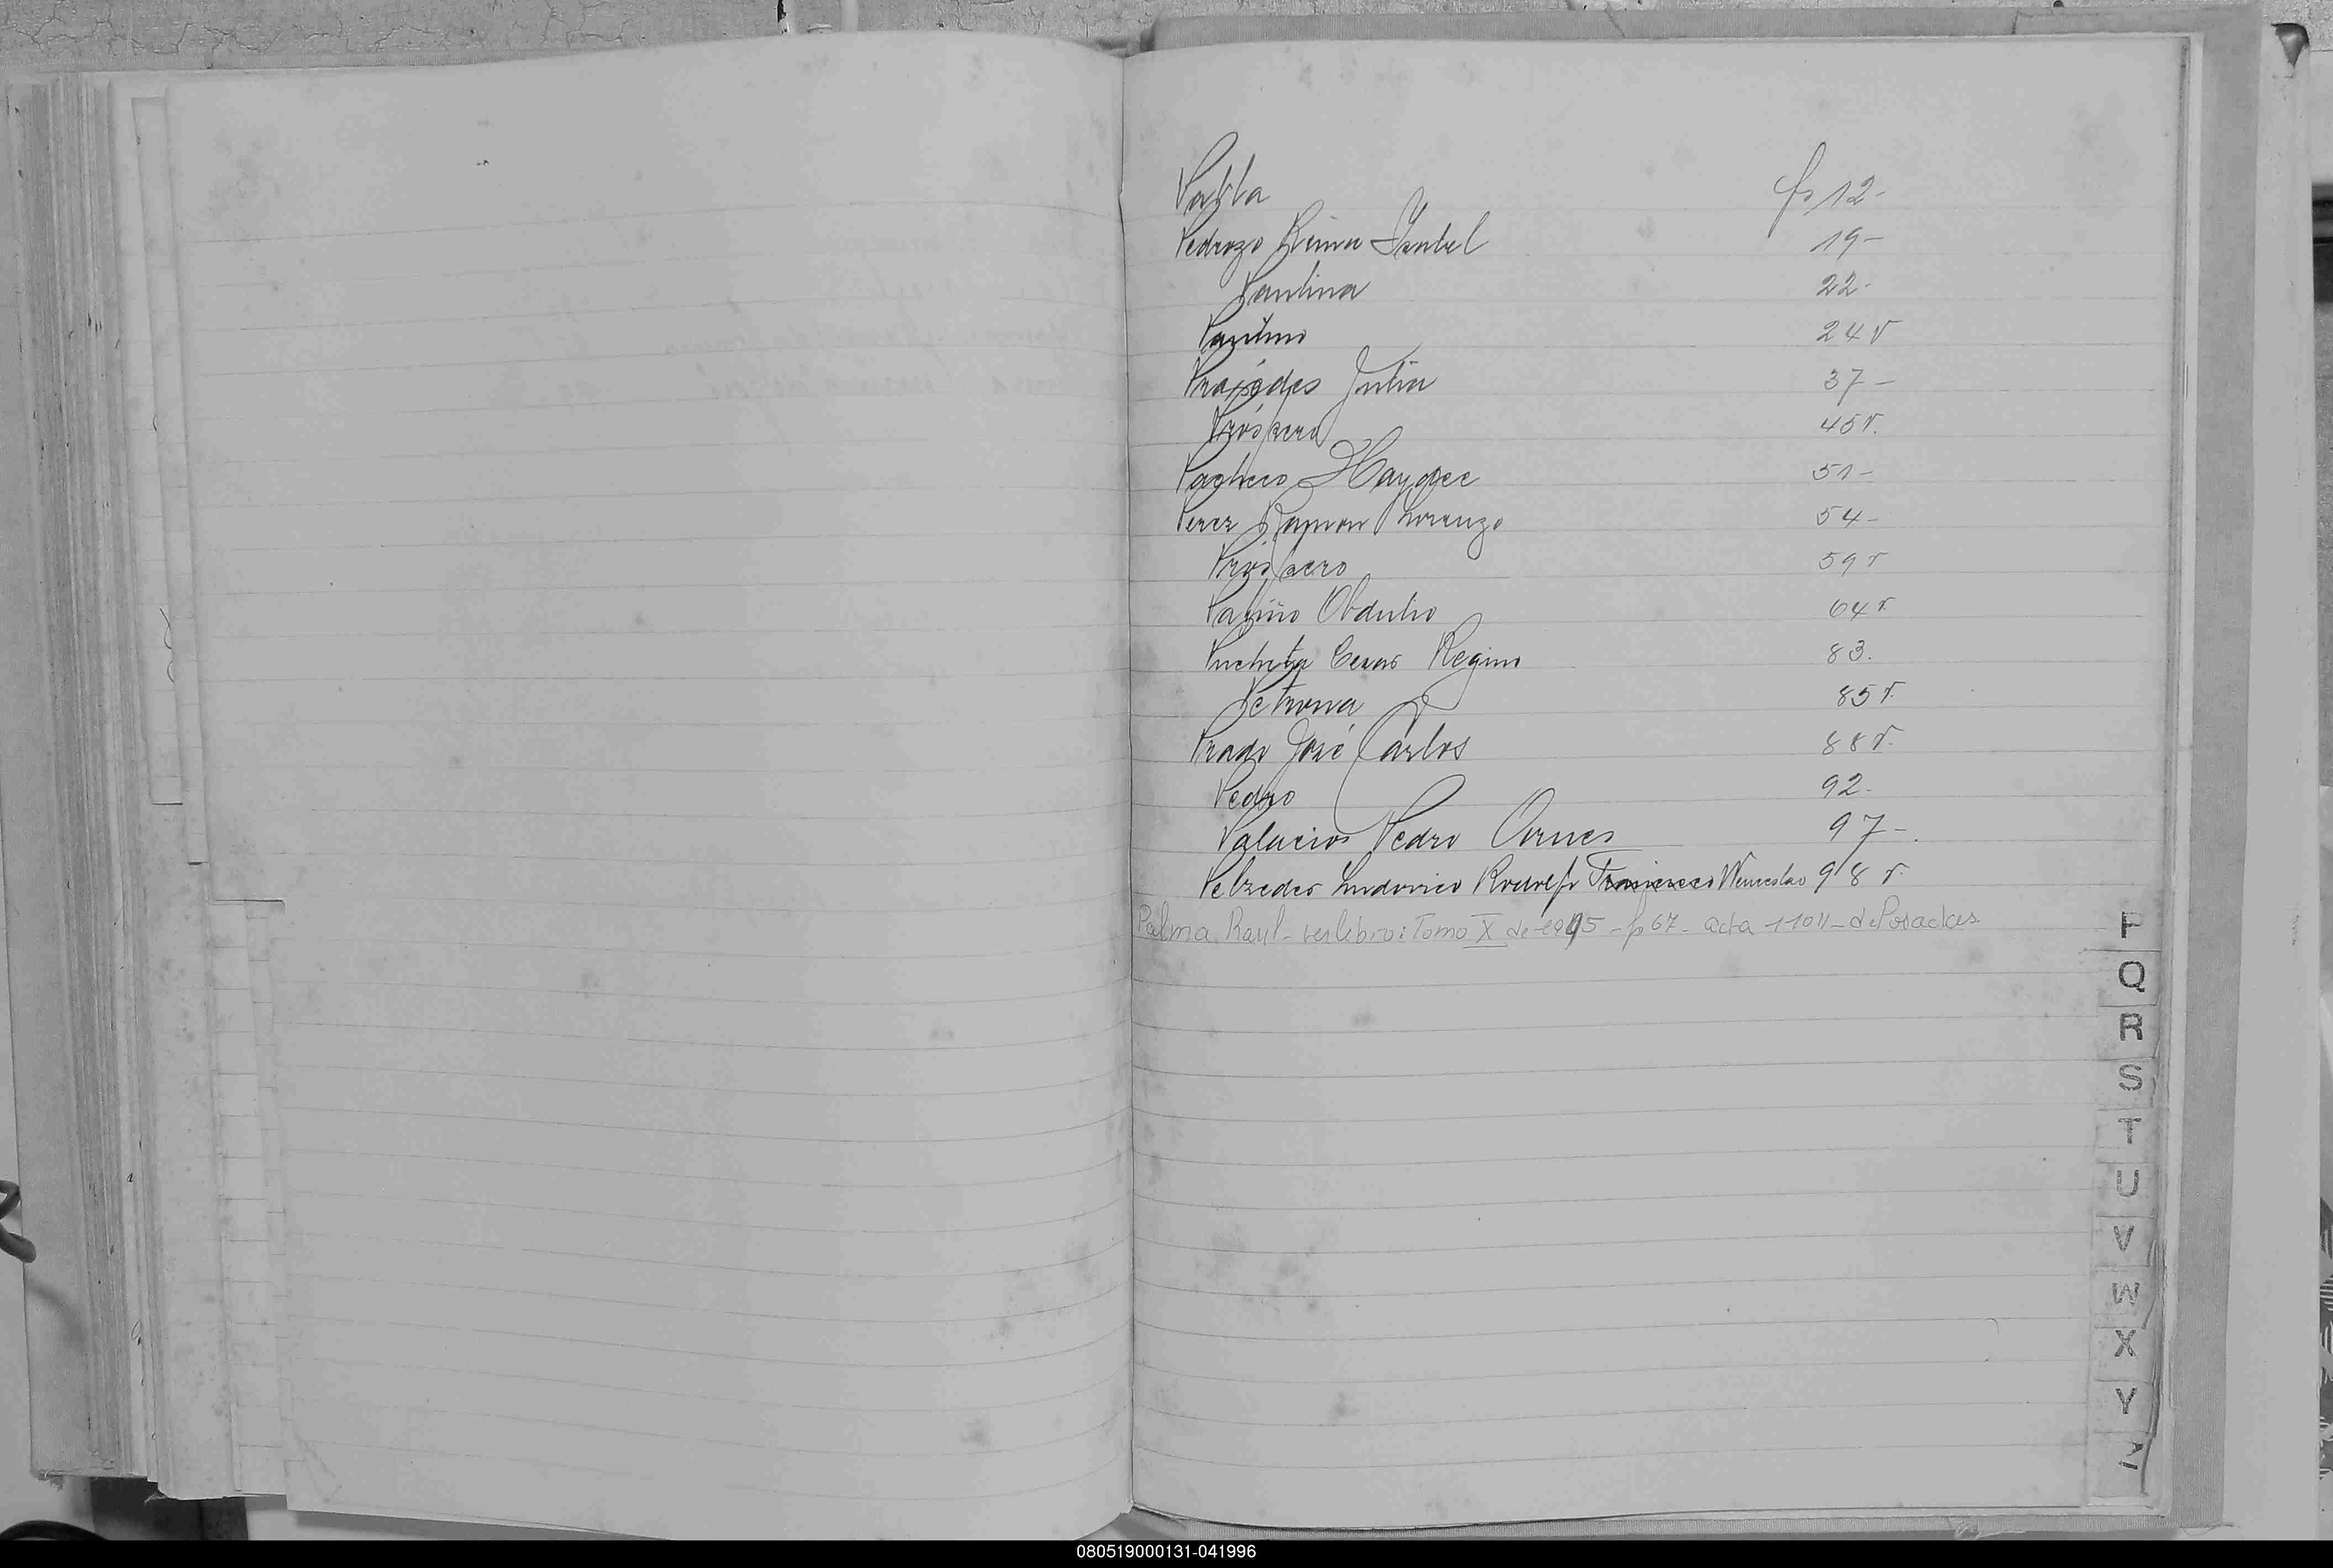 Pabla fs 12-
Pedrozo Reina Isabel 19-
Paulina 22-
Paulino 24 v
Praxedes Julia 37-
Próspero 45 v.
Pacheco Haydee 51-
Perez Ramon Lorenzo 54-
Próspero 59 v
Patiño Obdulio 64 v
Pucheta Cesar Regino 83.
Petrona 85 v.
Prado José Carlos 88 v.
Pedro 92-
Palacios Pedro 97-
Ludovico Rodolfo Francisco Wenceslao 98 v.
Palma Raul - ver libro: Tomo X de 1995 - f 67 - acta 11011 - de Posadas
P
Q
R
S
T
U
V
W
X
Y
Z
080519000131-041996